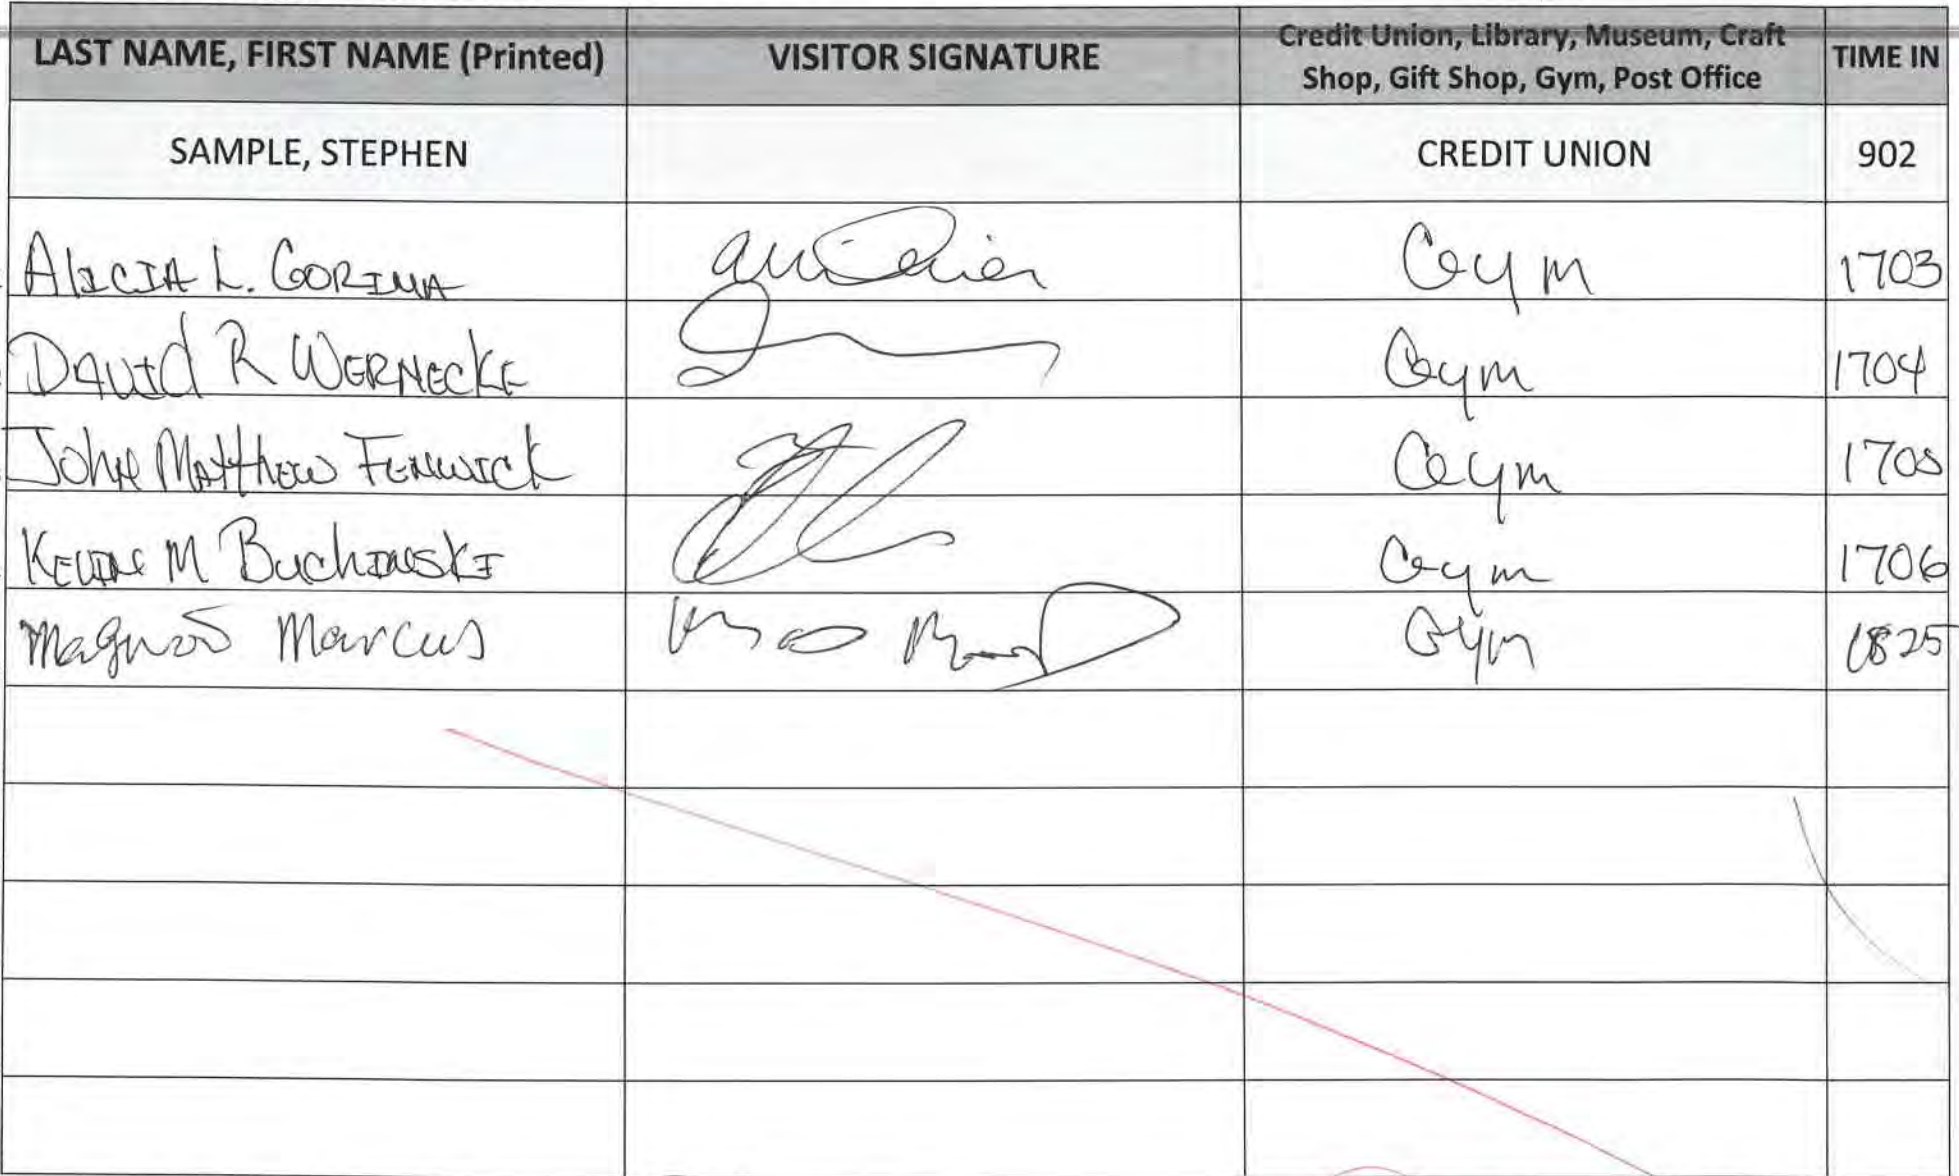 LAST NAME, FIRST NAME (Printed) VISITOR SIGNATURE Credit Union, Library, Museum, Craft Shop, Gift Shop, Gym, Post Office TIME IN
SAMPLE, STEPHEN CREDIT UNION 902
ALICIA L. GORINA Gym 1703
DAVId R WERNECKE Gym 1704
John MATThew FENWICK Gym 1705
KEVIN M BuchINSKI Gym 1706
Marcus Gym 1825